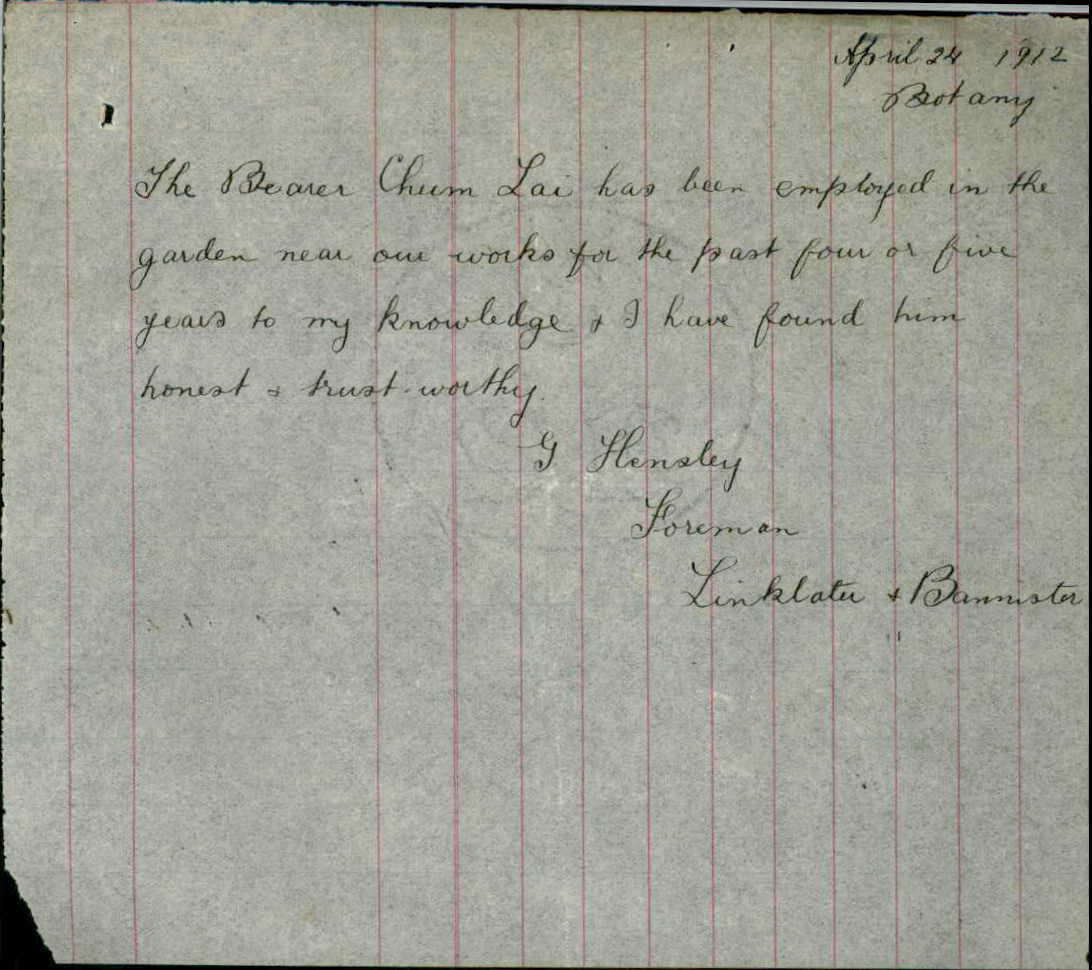 April 24 1912
Botany
The Bearer Chum Lai has been employed in the
garden near our works for the past four or five
years to my knowledge & I have found him
honest & trust-worthy.
G Hensley
Foreman
Linklater & Bannister